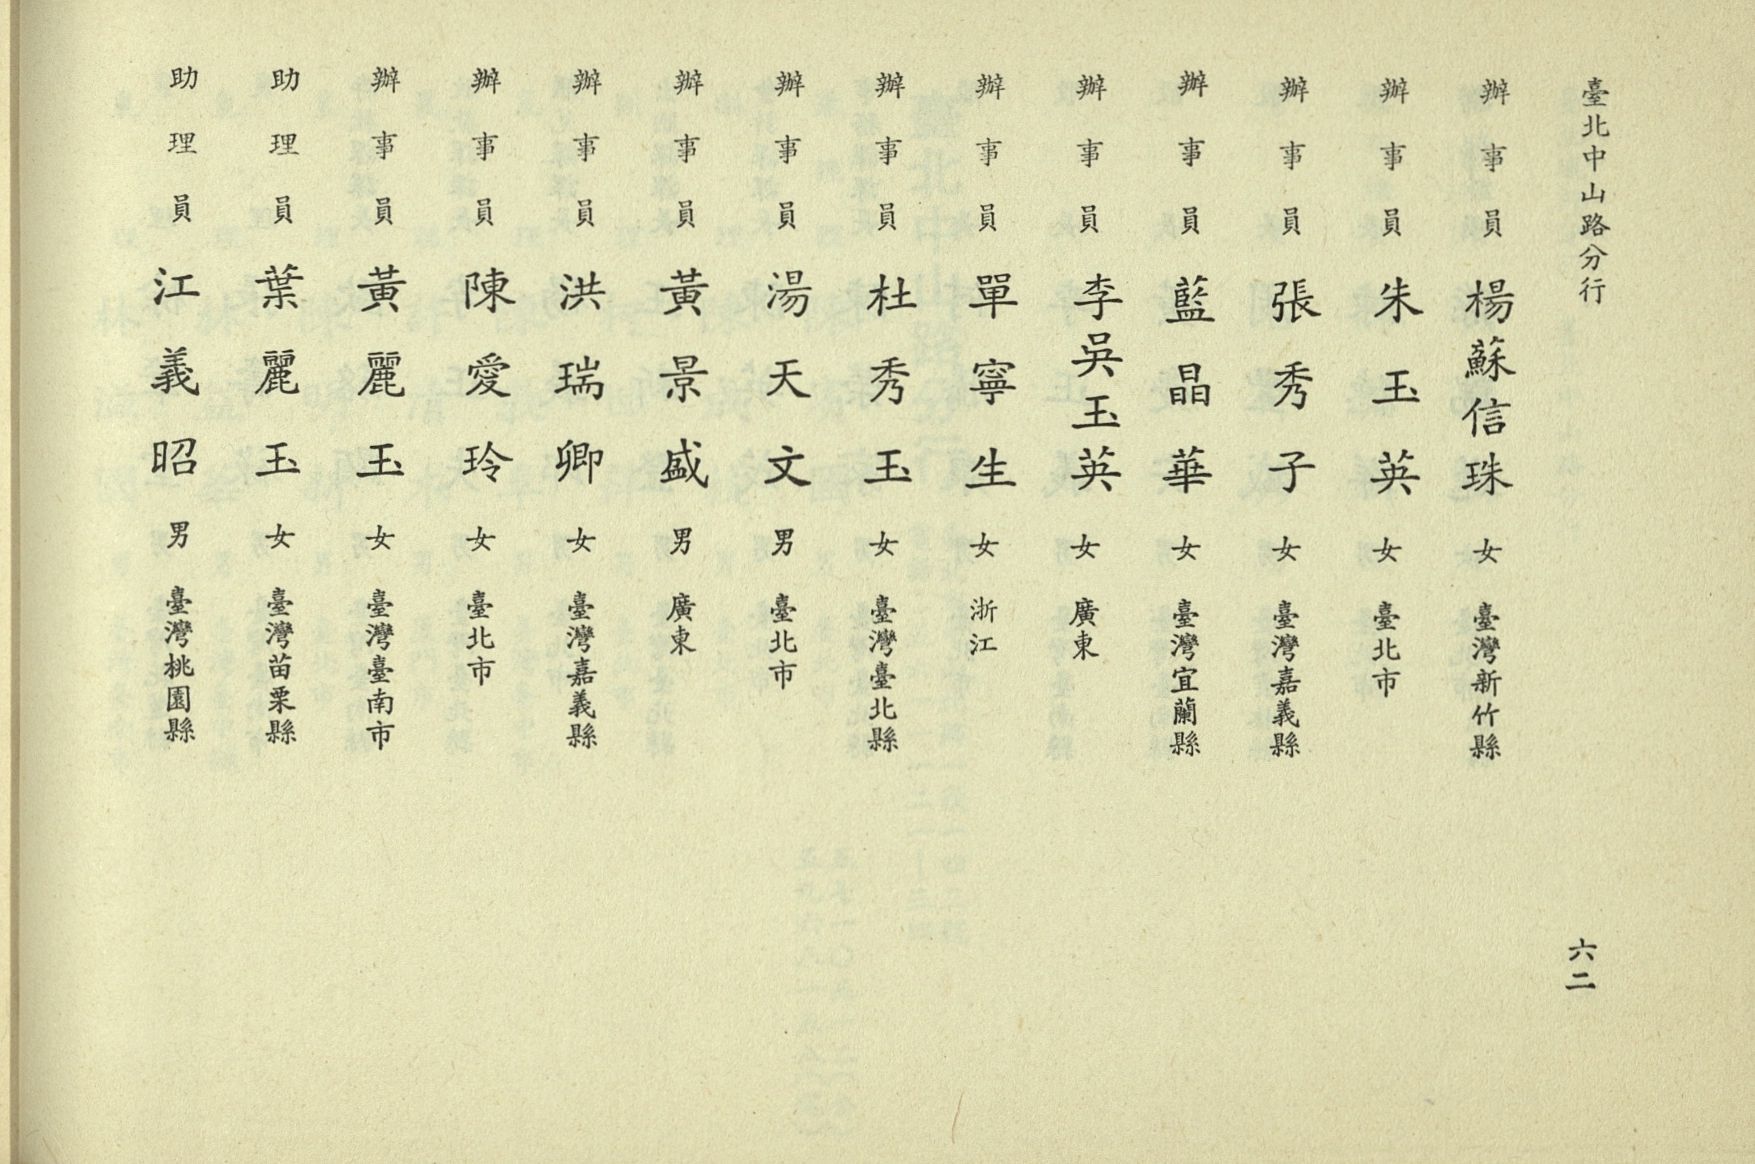 臺北中山路分行
辦事員 楊蘇信珠 女 臺灣新竹縣
辦事員 朱玉英 女 臺北市
辦事員 張秀子 女 臺灣嘉義縣
辦事員 藍晶華 女 臺灣宜蘭縣
辦事員 李吳玉英 女 廣東
辦事員 單寧生 女 浙江
辦事員 杜秀玉 女 臺灣臺北縣
辦事員 湯天文 男 臺北市
辦事員 黃景盛 男 廣東
辦事員 洪瑞卿 女 臺灣嘉義縣
辦事員 陳愛玲 女 臺北市
辦事員 黃麗玉 女 臺灣臺南市
助理員 葉麗玉 女 臺灣苗栗縣
助理員 江義昭 男 臺灣桃園縣
六二